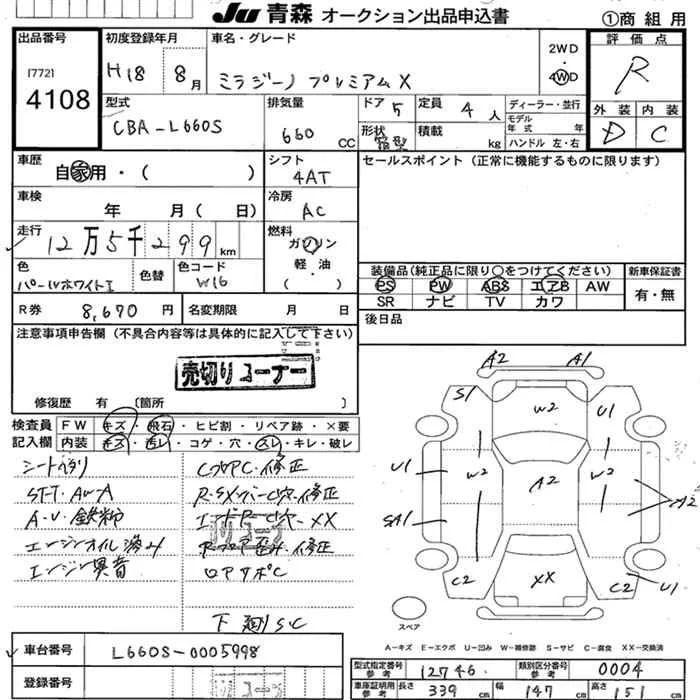 JU 青森 オークション出品申込書 ①商組用
出品番号 初度登録年月 車名・グレード 2WD 評価点
[772] H18 8月 ミラジーノ プレミアムX 4WD R
4108 型式 排気量 ドア 5 定員 4人 ディーラー・並行 外装 内装
CBA-L660S 660 CC 形状 箱型 積載 kg モデル年式 年 D C
ハンドル 左・右
車歴 自家用・( ) シフト 4AT セールスポイント (正常に機能するものに限ります)
車検 年 月( 日) 冷房 AC
走行 12万5千299km 燃料 ガソリン
軽・油
( )
色 パールホワイトI 色替 色コード W16 装備品(純正品に限り○をつけてください) 新車保証書
PS PW ABS エアB AW 有・無
SR ナビ TV カワ
R券 8,670円 名変期限 月 日 後日品
注意事項申告欄 (不具合内容等は具体的に記入して下さい)
売切りコーナー
修復歴 有 〔箇所 〕
検査員 FW キズ・飛石・ヒビ割・リペア跡・×要
記入欄 内装 キズ・汚レ・コゲ・穴・スレ・キレ・破レ
シートヘタリ CフロアC・修正
ST-T・AW-A
A・V・鉄粉 XX
エンジンオイル滲み 修正
エンジン異音 ロアサポC
下廻SC
A2 A1
S1 W2 U1
U1 W2 A2 W2 A2
SA1
C2 XX C2 U1
スペア
A-キズ E-エクボ U-凹み W-補修跡 S-サビ C-腐食 XX-交換済
車台番号 L660S-0005998
登録番号 コーナー
型式指定番号 参考 12746 類別区分番号 参考 0004
車庫証明用 参考 長さ 339 cm 幅 147 cm 高さ 151 cm